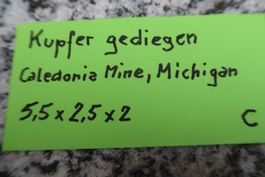 Kupfer gediegen
Caledonia Mine, Michigan
5,5 x 2,5 x 2 C